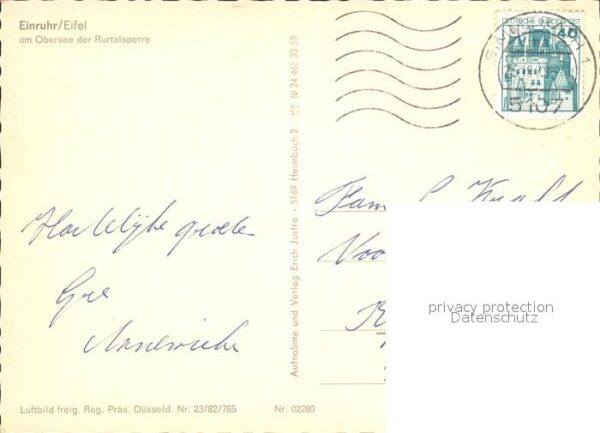 Einruhr/Eifel
am Obersee der Rurtalsperre
DEUTSCHE BUNDESPOST
40
SIMMERATH 1
5107
Aufnahme und Verlag Erich Justra · 5169 Heimbach 2 · ☎ (0 24 46) 33 59
Hartelijke groeten
Gré
Annemieke
Fam
Voo
privacy protection
Datenschutz
Luftbild freig. Reg. Präs. Düsseld. Nr. 23/82/765
Nr. 02280